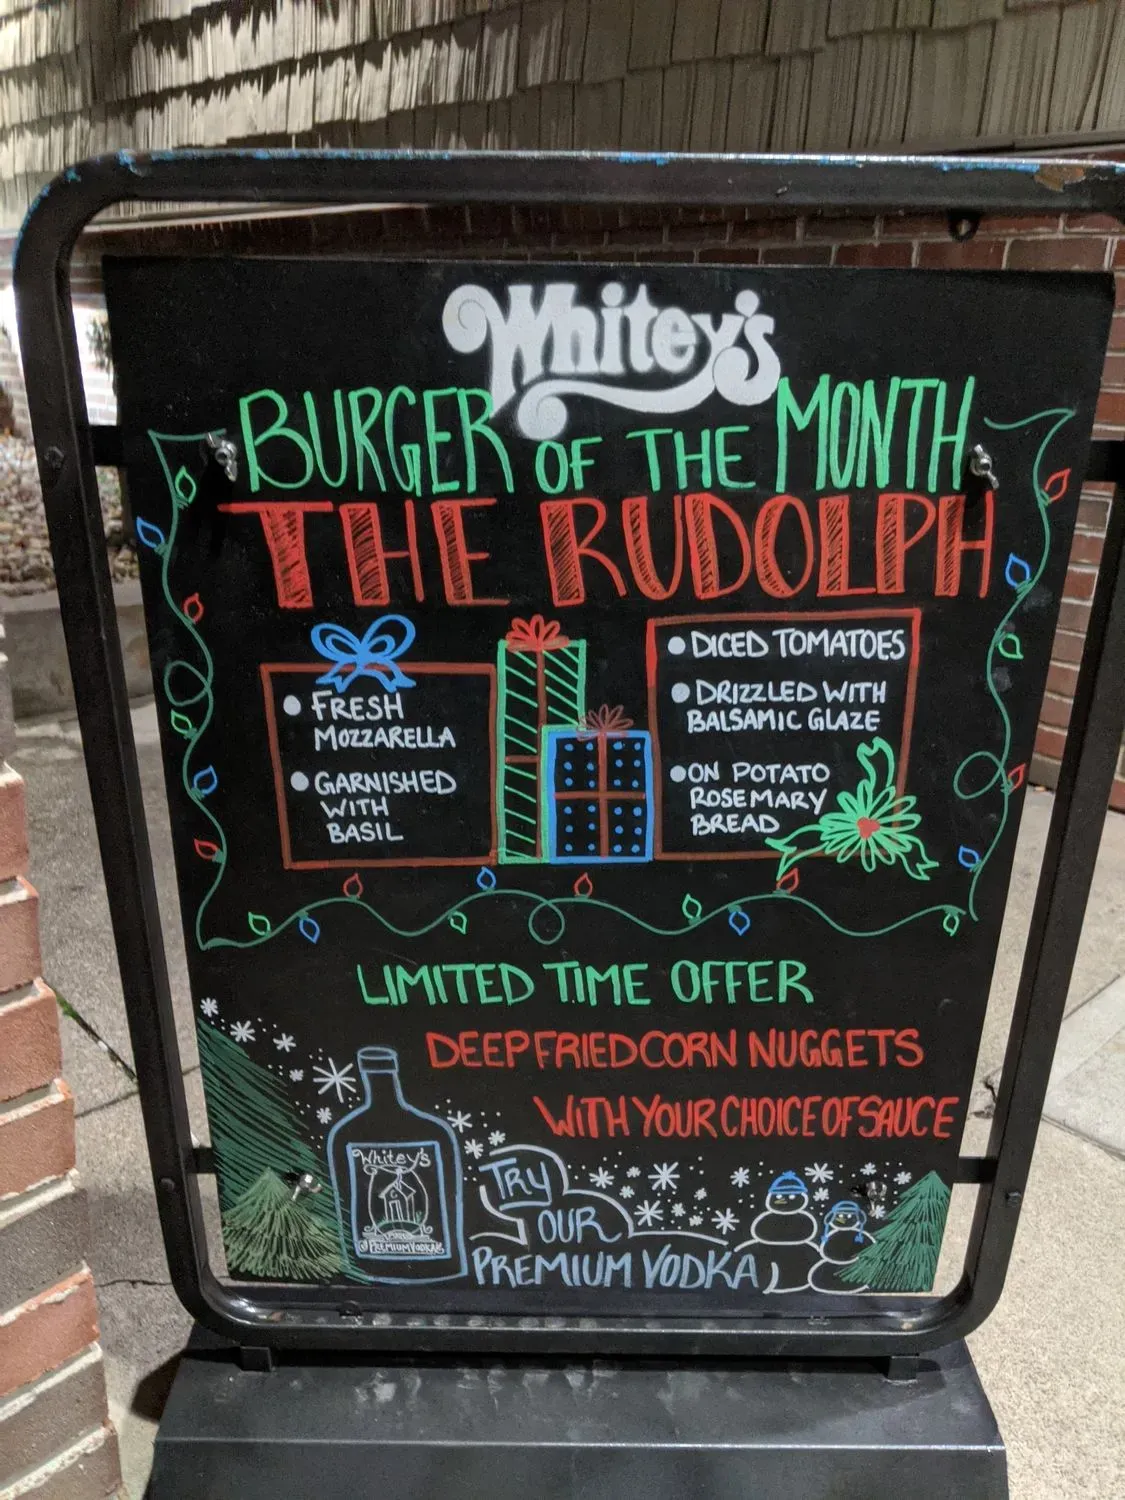 Whitey's
BURGER OF THE MONTH
THE RUDOLPH
• FRESH
MOZZARELLA
• GARNISHED
WITH
BASIL
• DICED TOMATOES
• DRIZZLED WITH
BALSAMIC GLAZE
• ON POTATO
ROSEMARY
BREAD
LIMITED TIME OFFER
DEEP FRIED CORN NUGGETS
WITH YOUR CHOICE OF SAUCE
Whitey's
PREMIUM VODKA
TRY
OUR
PREMIUM VODKA